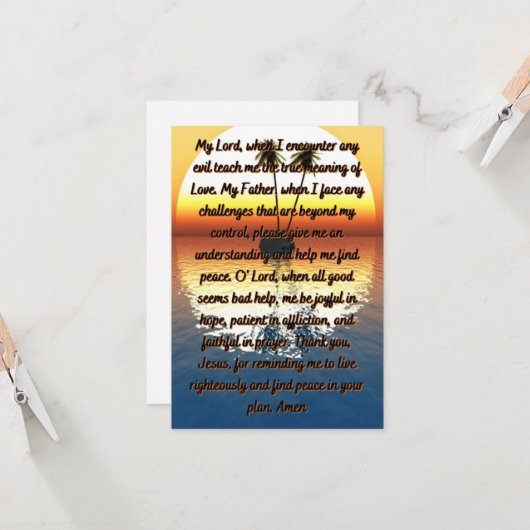 My Lord, when I encounter any
evil teach me the true meaning of
Love. My Father. when I face any
challenges that are beyond my
control, please give me an
understanding and help me find
peace. O' Lord, when all good
seems bad help, me be joyful in
hope, patient in affliction, and
faithful in prayer. Thank you,
Jesus, for reminding me to live
righteously and find peace in your
plan. Amen